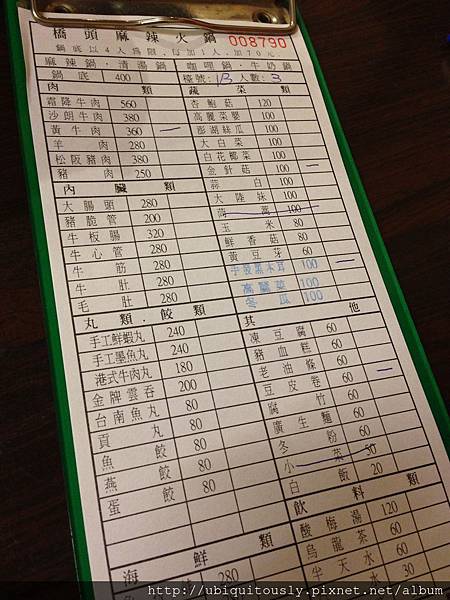 橋頭麻辣火鍋 008790
鍋底以4人為限,每加1人,加70元
麻辣鍋·清湯鍋 咖哩鍋·牛奶鍋
鍋底 400 檯號: 13 人數: 3
肉類
霜降牛肉 560
沙朗牛肉 380
黃牛肉 360 一
羊肉 280
松阪豬肉 380
豬肉 250
內臟類
大腸頭 280
豬脆管 200
牛板腸 320
牛心管 280
牛筋 280
牛肚 280
毛肚 280
丸類.餃類
手工鮮蝦丸 240
手工墨魚丸 240
港式牛肉丸 180
金牌雲吞 200
台南魚丸 80
貢丸 80
魚餃 80
燕餃 80
蛋餃 80
海鮮類
280
蔬菜類
杏鮑菇 120
高麗菜嬰 100
澎湖絲瓜 100
大白菜 100
白花椰菜 100
金針菇 100 一
蒜白 100
大陸妹 100
茼蒿 100
玉米 80
鮮香菇 80
黃豆芽 60
手發黑木耳 100 一
高麗菜 100
冬瓜 100
其他
凍豆腐 60
豬血糕 60
老油條 60
豆皮卷 60 一
腐竹 60
廣生麵 60
冬粉 60
小菜 50
白飯 20
飲料類
酸梅湯 120
烏龍茶 60
半天水 60
30
http://ubiquitously.pixnet.net/album